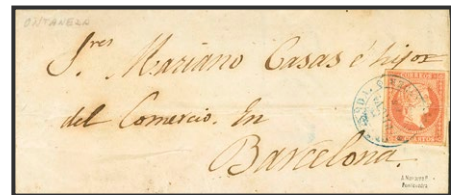 ONTANEDA
Sres Mariano Casas é hijos
del Comercio. En
Barcelona.
CORREOS